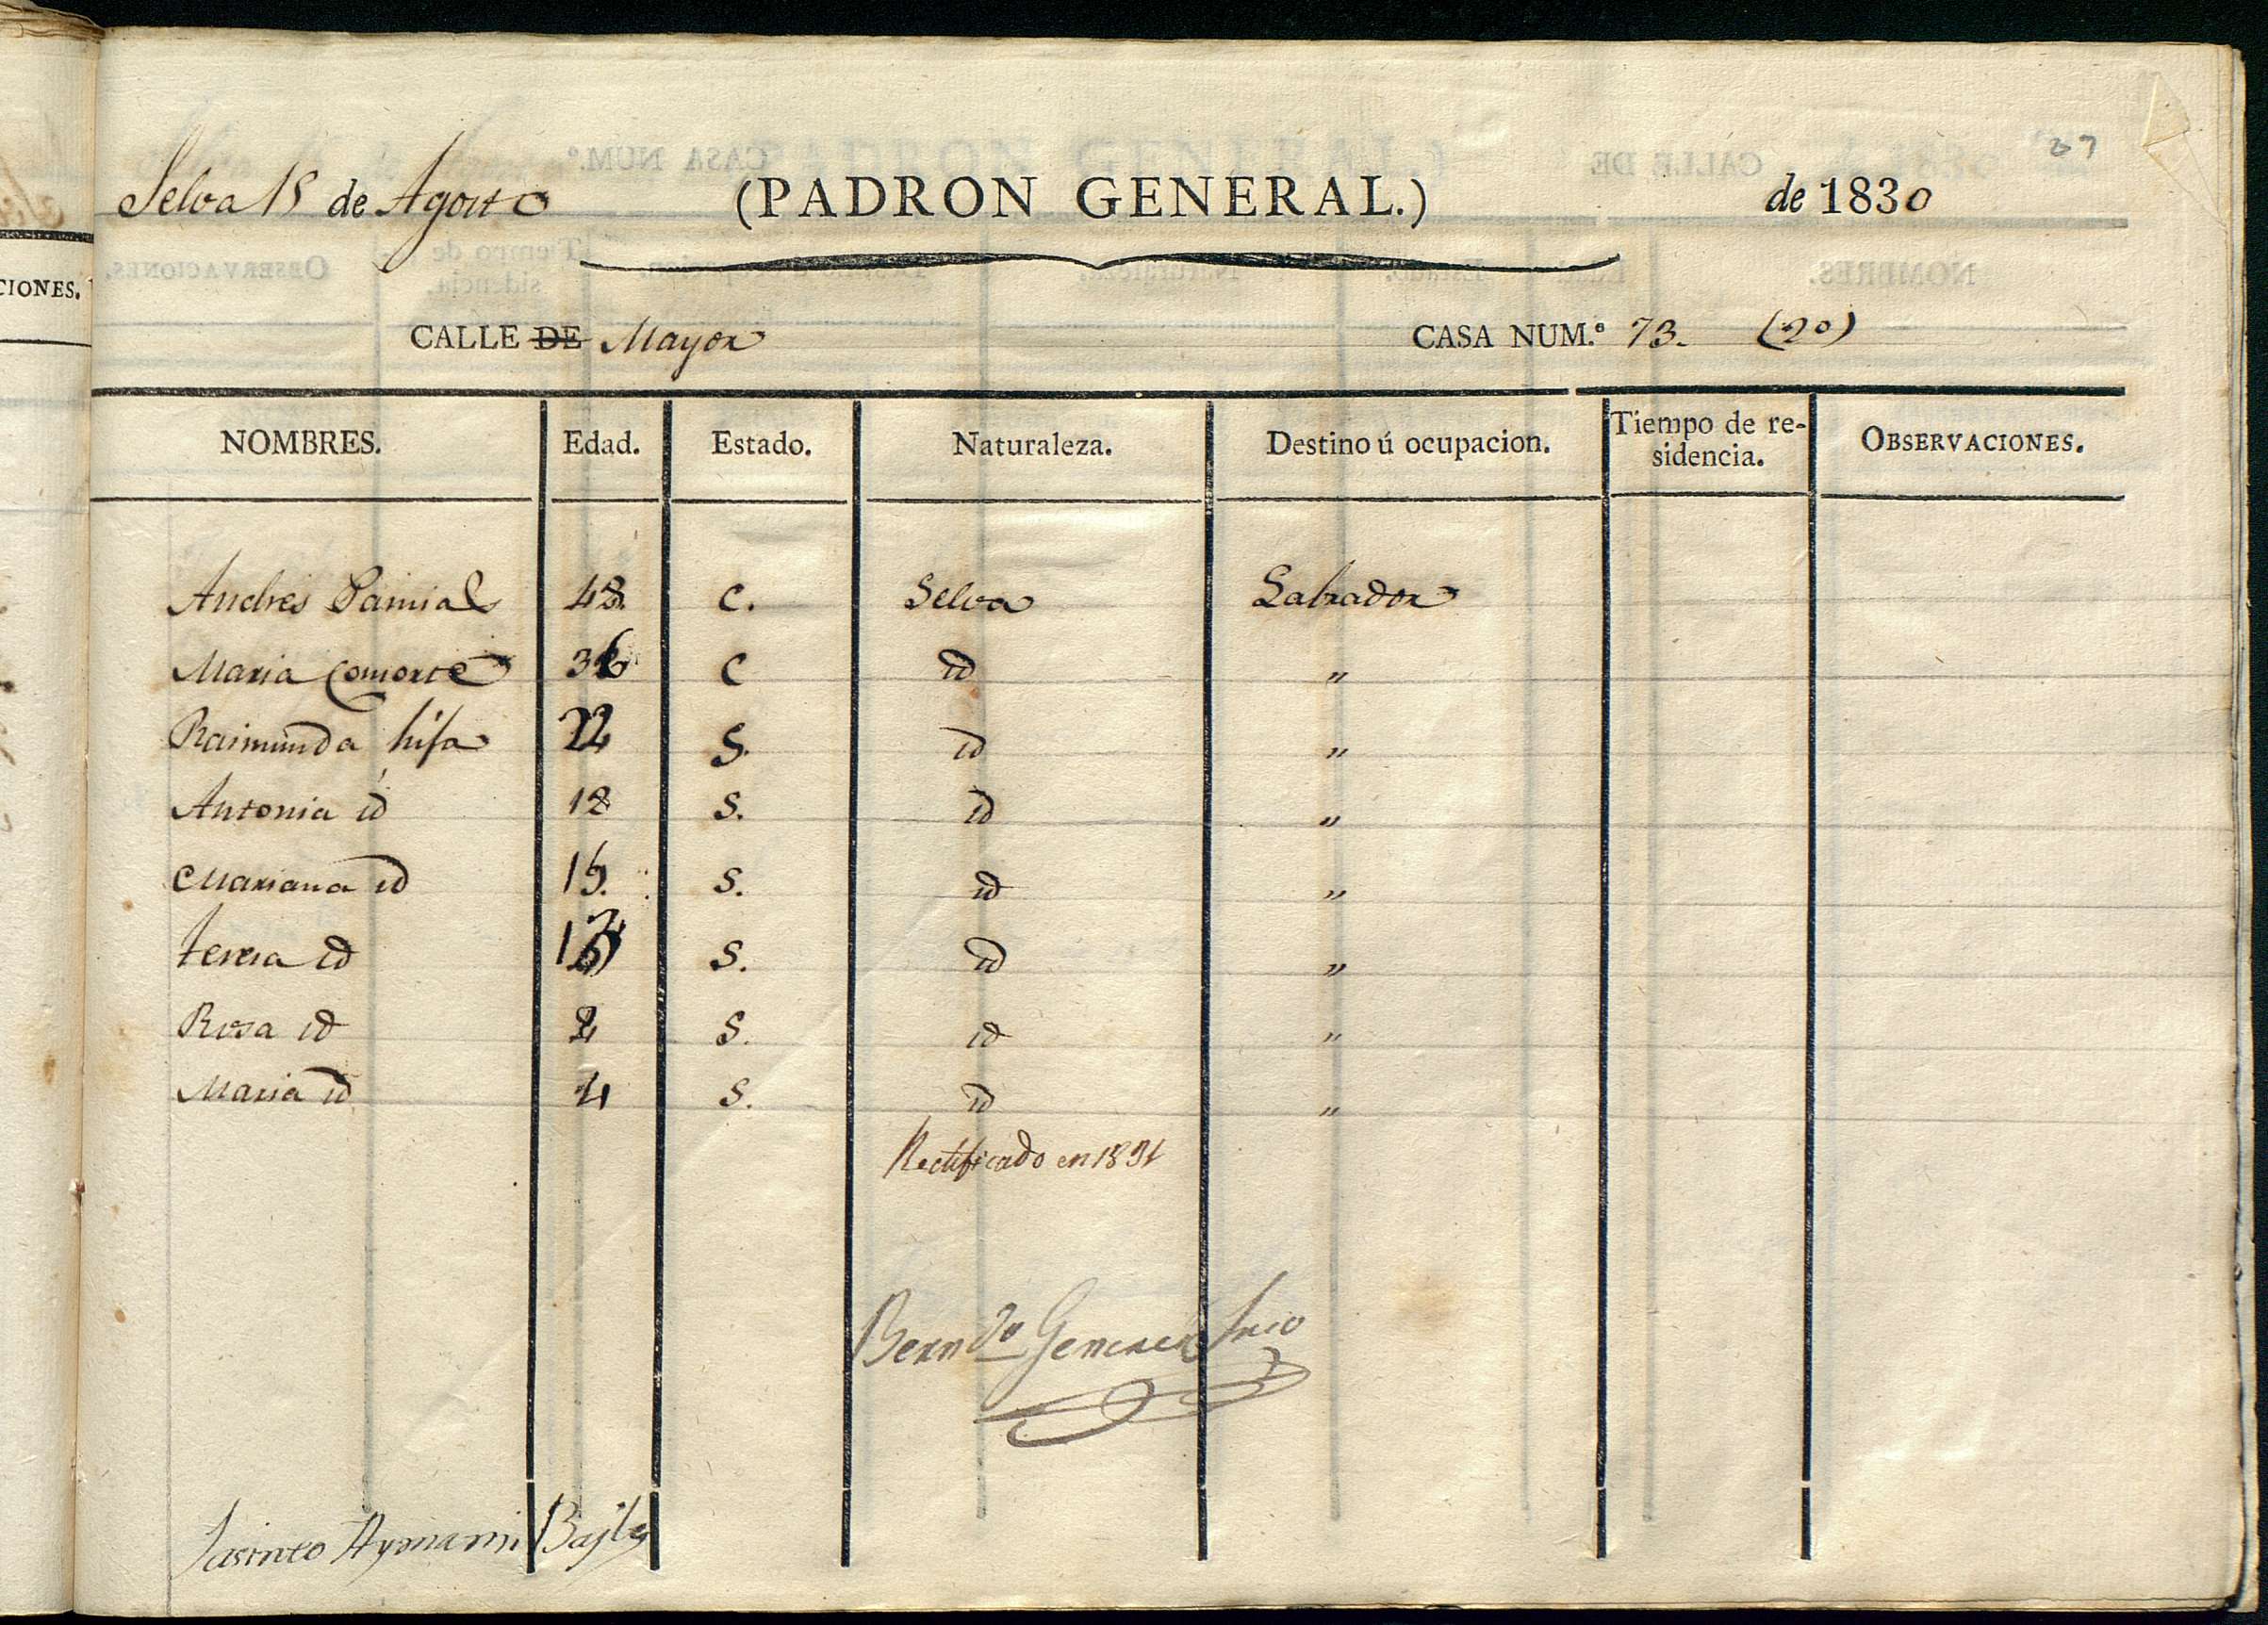 CIONES.
27
Selva 15 de Agosto (PADRON GENERAL.) de 1830
CALLE DE Mayor CASA NUM.º 73. (20)
NOMBRES. Edad. Estado. Naturaleza. Destino ú ocupacion. Tiempo de re-sidencia. OBSERVACIONES.
Andres 48 C. Selva Labrador
Maria Consorte 36 C id "
Raimunda hifa S. id "
Antonia id 18 S. id "
Mariana id S. id "
Teresa id S. id "
Rosa id S. id "
Maria id 4 S. id "
Rectificado en 1831
Berndo Gener Srio
Jasinto Aymami Bayle